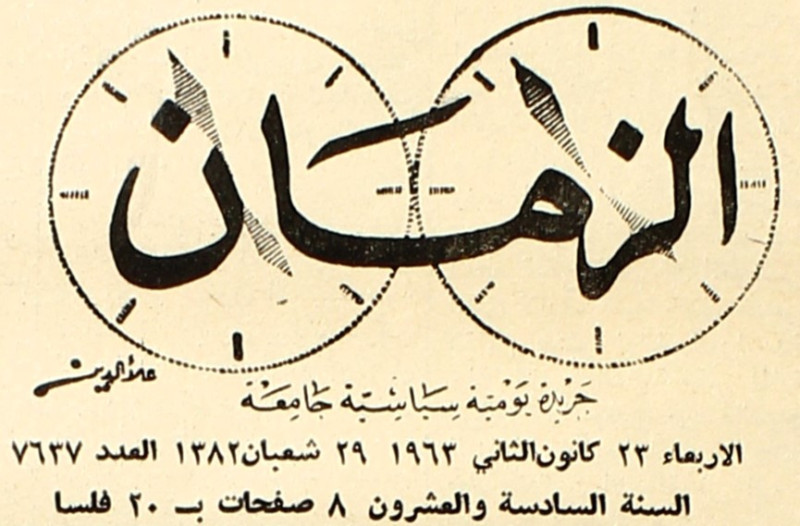 الزمان
علاءالدين
جريدة يومية سياسية جامعة
الاربعاء ٢٣ كانون الثاني ١٩٦٣ ٢٩ شعبان ١٣٨٢ العدد ٧٦٣٧
السنة السادسة والعشرون ٨ صفحات بـ ٢٠ فلسا